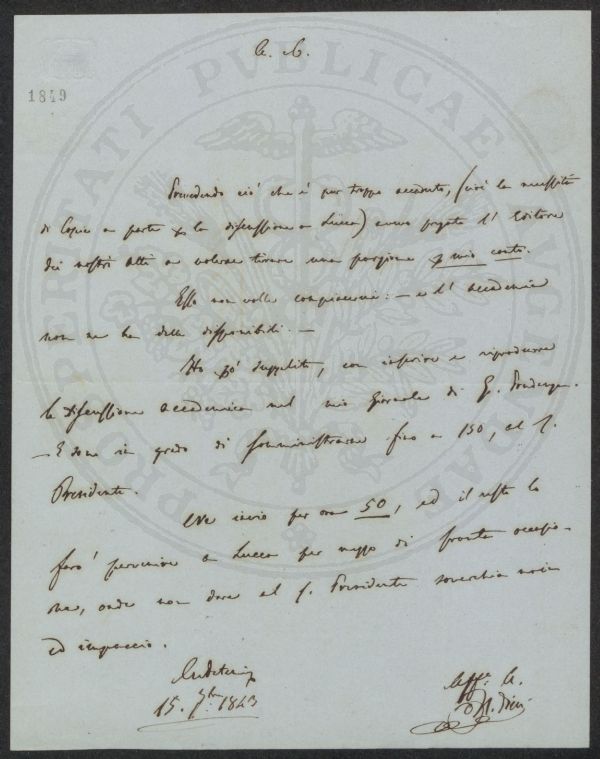 C. A.
1849
Prevedendo ciò che è pur troppo accaduto, (cioè la necessità
di Copie a parte per la discussione a Lucca) avevo pregato l'Editore
dei nostri atti a volerne tirare una porzione per mio conto.
Esso non volle compiacermi: — e l'accademia
non ne ha delle disponibili. —
Ho però supplito, con inserire e riprodurre
la discussione accademica nel mio Giornale di
— E sono in grado di somministrarne fino a 150, al S.
Presidente.
Ne invio per ora 50, ed il resto lo
farò pervenire a Lucca per mezzo di pronta occasio-
ne, onde non dare al S. Presidente soverchia noia
ed impaccio.
15. 7bre 1843
Affo. A.
PROSPERITATI PVBLICAE AVGENDAE